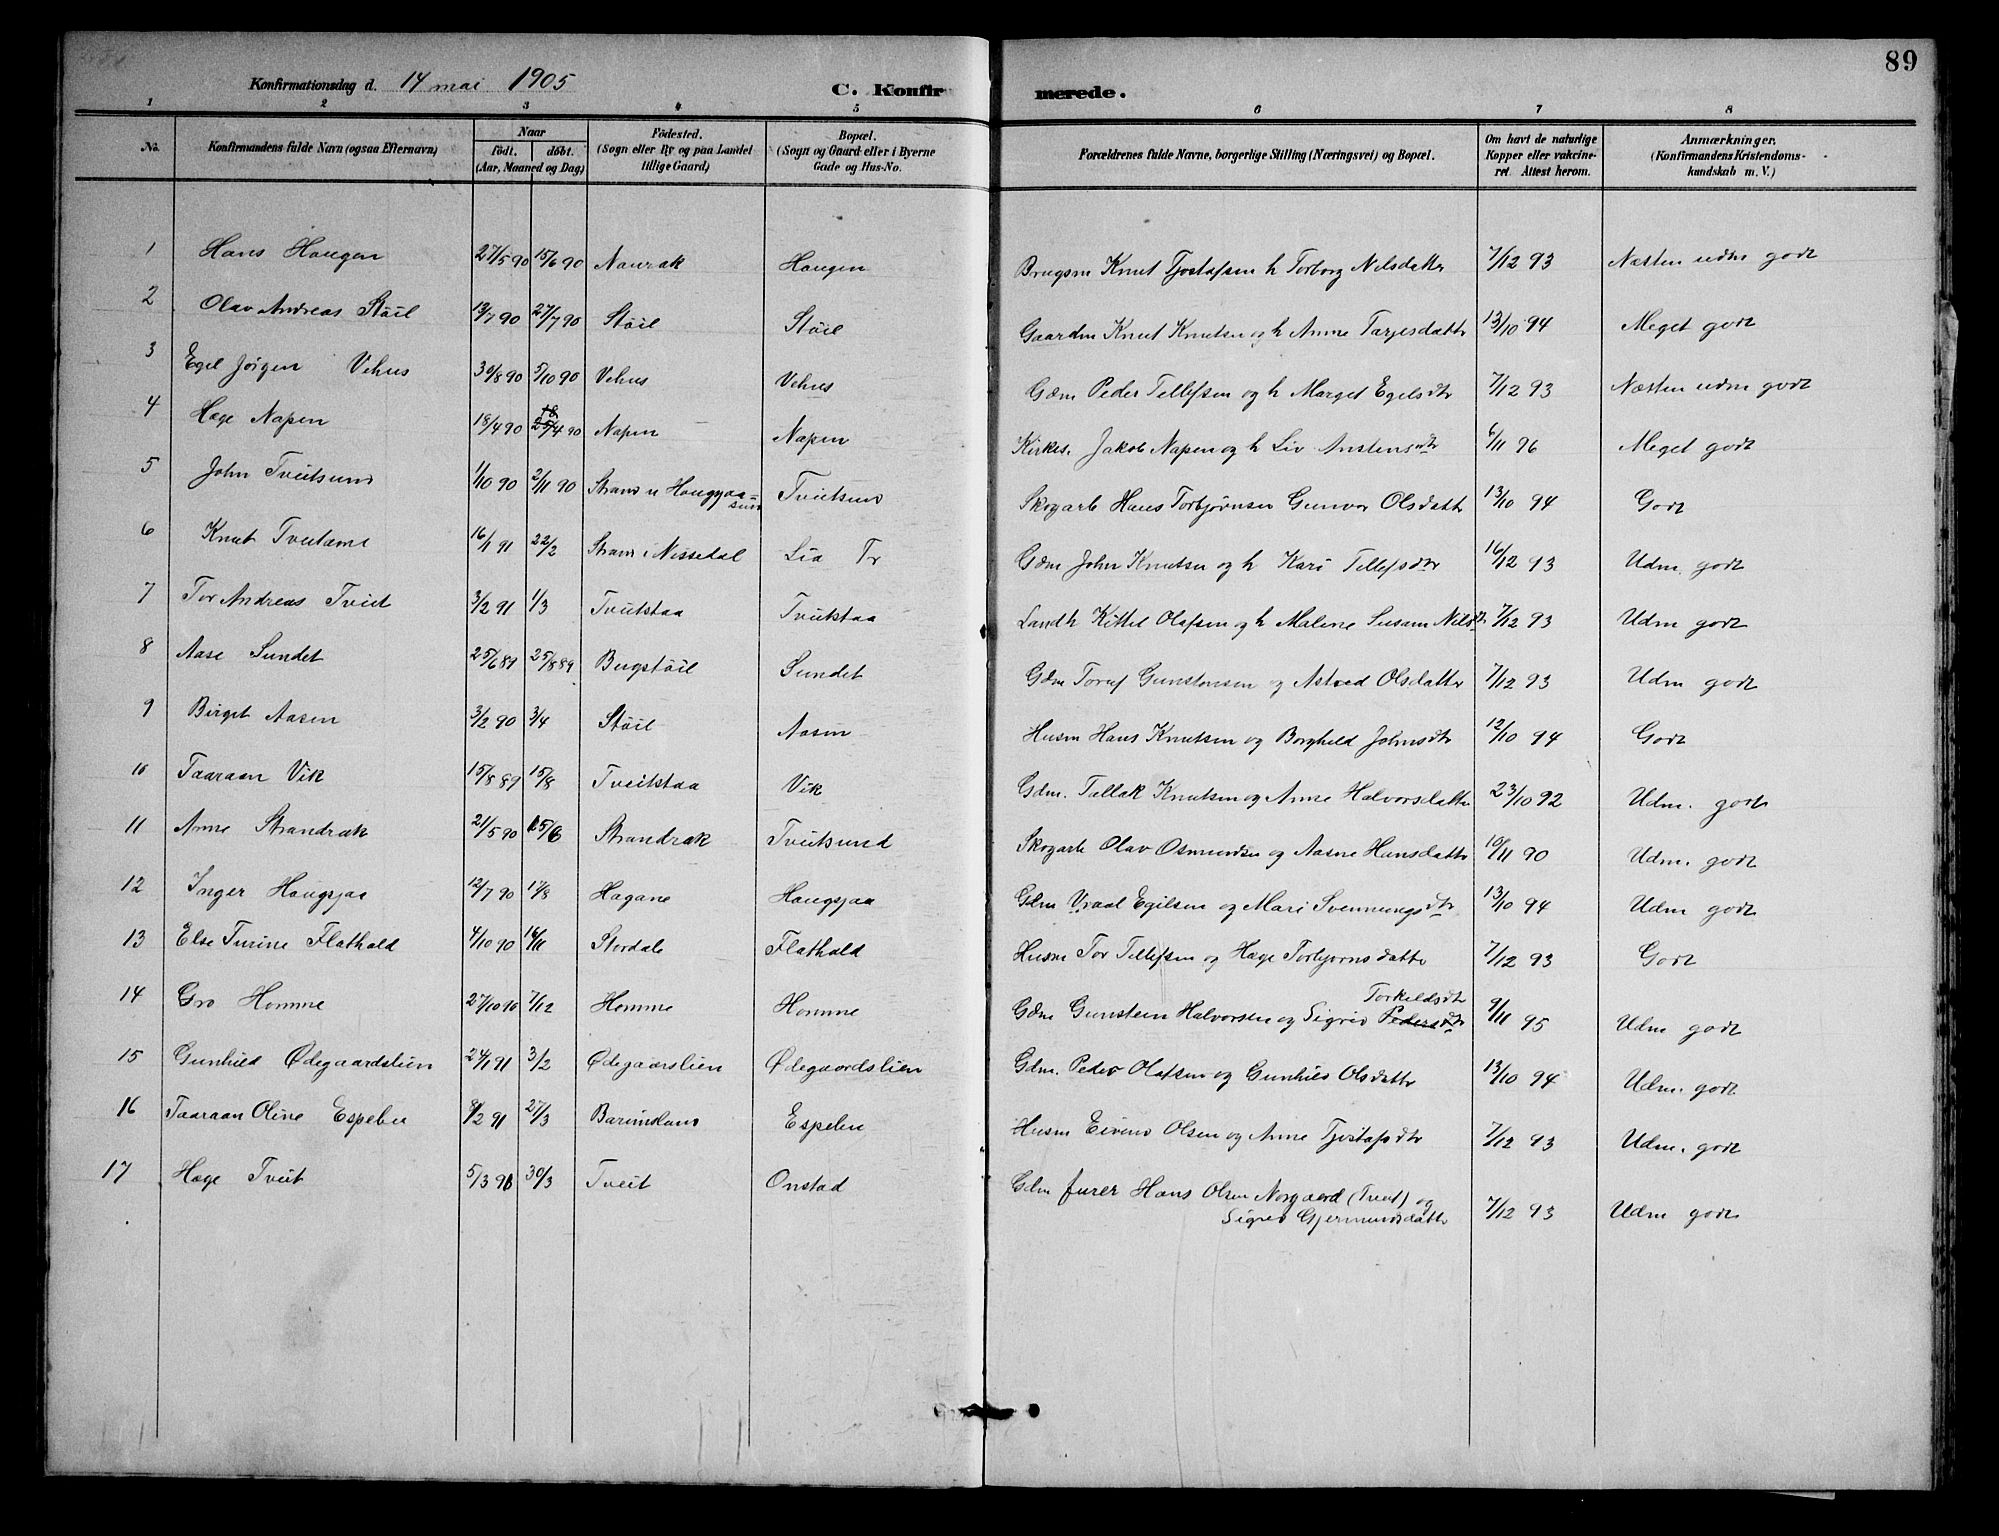 89
Konfirmationsdag d. 14 mai 1905 C. Konfir merede.
1 2 3 4 5 6 7 8
No. Konfirmandens fulde Navn (ogsaa Efternavn) Naar födt. döbt. (Aar, Maaned og Dag) Födested. (Sogn eller By og paa Landet tillige Gaard) Bopæl. (Sogn og Gaard eller i Byerne Gade og Hus-No. Forældrenes fulde Navne, borgerlige Stilling (Næringsvei) og Bopæl. Om havt de naturlige Kopper eller vakcineret. Attest herom. Anmærkninger. (Konfirmandens Kristendomskundskab m. V.)
1 Hans Haugen 27/5 90 15/6 90 Naurak Haugen Brugsm Knut Tjostafsen h Torborg Nilsdatter 7/12 93 Næsten udm godt
2 Olav Andreas Stöil 13/7 90 27/7 90 Stöil Stöil Gaardm Knut Knutsen og h Anne Tarjesdattr 13/10 94 Meget godt
3 Egel Jörgen Vehus 30/8 90 5/10 90 Vehus Vehus Gdm Peder Tellefsen og h Marget Egelsdtr 7/12 93 Næsten udm godt
4 Hæge Napen 18/4 90 18 25/4 90 Napen Napen Kirkes. Jakob Napen og h Liv Anstensdtr 6/11 96 Meget godt
5 John Tveitsund 1/10 90 2/11 90 Strand i Haugsjaasund Tveitsund Skogarb Hans Torbjørnsen Gunvor Olsdattr 13/10 94 Godt
6 Knut Tveitane 16/1 91 22/2 Strand i Nissedal Lia Tr Gdm John Knutsen og h Kari Tellefsdtr 16/12 93 Udm. godt
7 Tor Andreas Tveit 3/2 91 1/3 Tveitstaa Tveitstaa Landh Kittel Olafsen og h Malene Susann Nilsdtr 7/12 93 Udm godt
8 Aase Sundet 25/6 89 25/8 89 Bugstöil Sundet Gdm Toruf Gunstensen og Astrid Olsdatter 7/12 93 Udm godt
9 Birget Aasen 3/2 90 3/4 Stöil Aasen Husm Hans Knutsen og Borghild Johnsdtr 12/10 94 Godt
10 Taaraan Vik 15/8 89 15/8 Tveitstaa Vik Gdm. Tallak Knutsen og Anne Halvorsdatter 23/10 92 Udm. godt
11 Anne Strandrak 21/5 90 15/6 Strandrak Tveitsund Skogarb Olav Osmundsen og Aasne Hansdattr 10/11 90 Udm. godt
12 Inger Haugsjaa 12/7 90 17/8 Hagane Haugsjaa Gdm Vraal Egilsen og Mari Svennungsdtr 13/10 94 Udm godt
13 Else Turine Flathald 4/10 90 16/11 Stordale Flathald Husm Tor Tellefsen og Hæge Torbjornsdattr 7/12 93 Godt
14 Gro Homme 27/10 90 7/12 Homme Homme Gdm Gunstein Halvorsen og Sigrid Pedersdtr Torkeldsdtr 9/11 95 Udm godt
15 Gunhild Ødegaardslien 24/1 91 3/2 Ødegaarslien Ødegaardslien Gdm. Peder Olafsen og Gunhild Olsdattr 13/10 94 Udm. godt
16 Taaraan Oline Espeliu 8/2 91 27/3 Espeliu Husm Eivind Olsen og Anne Tjostafsdtr 7/12 93 Udm. godt
17 Hæge Tveit 5/3 90 30/3 Tveit Onstad Gdm furer Hans Olsen Norgaard (Tveit) og
Sigrid Gjermundsdattr 7/12 93 Udm godt